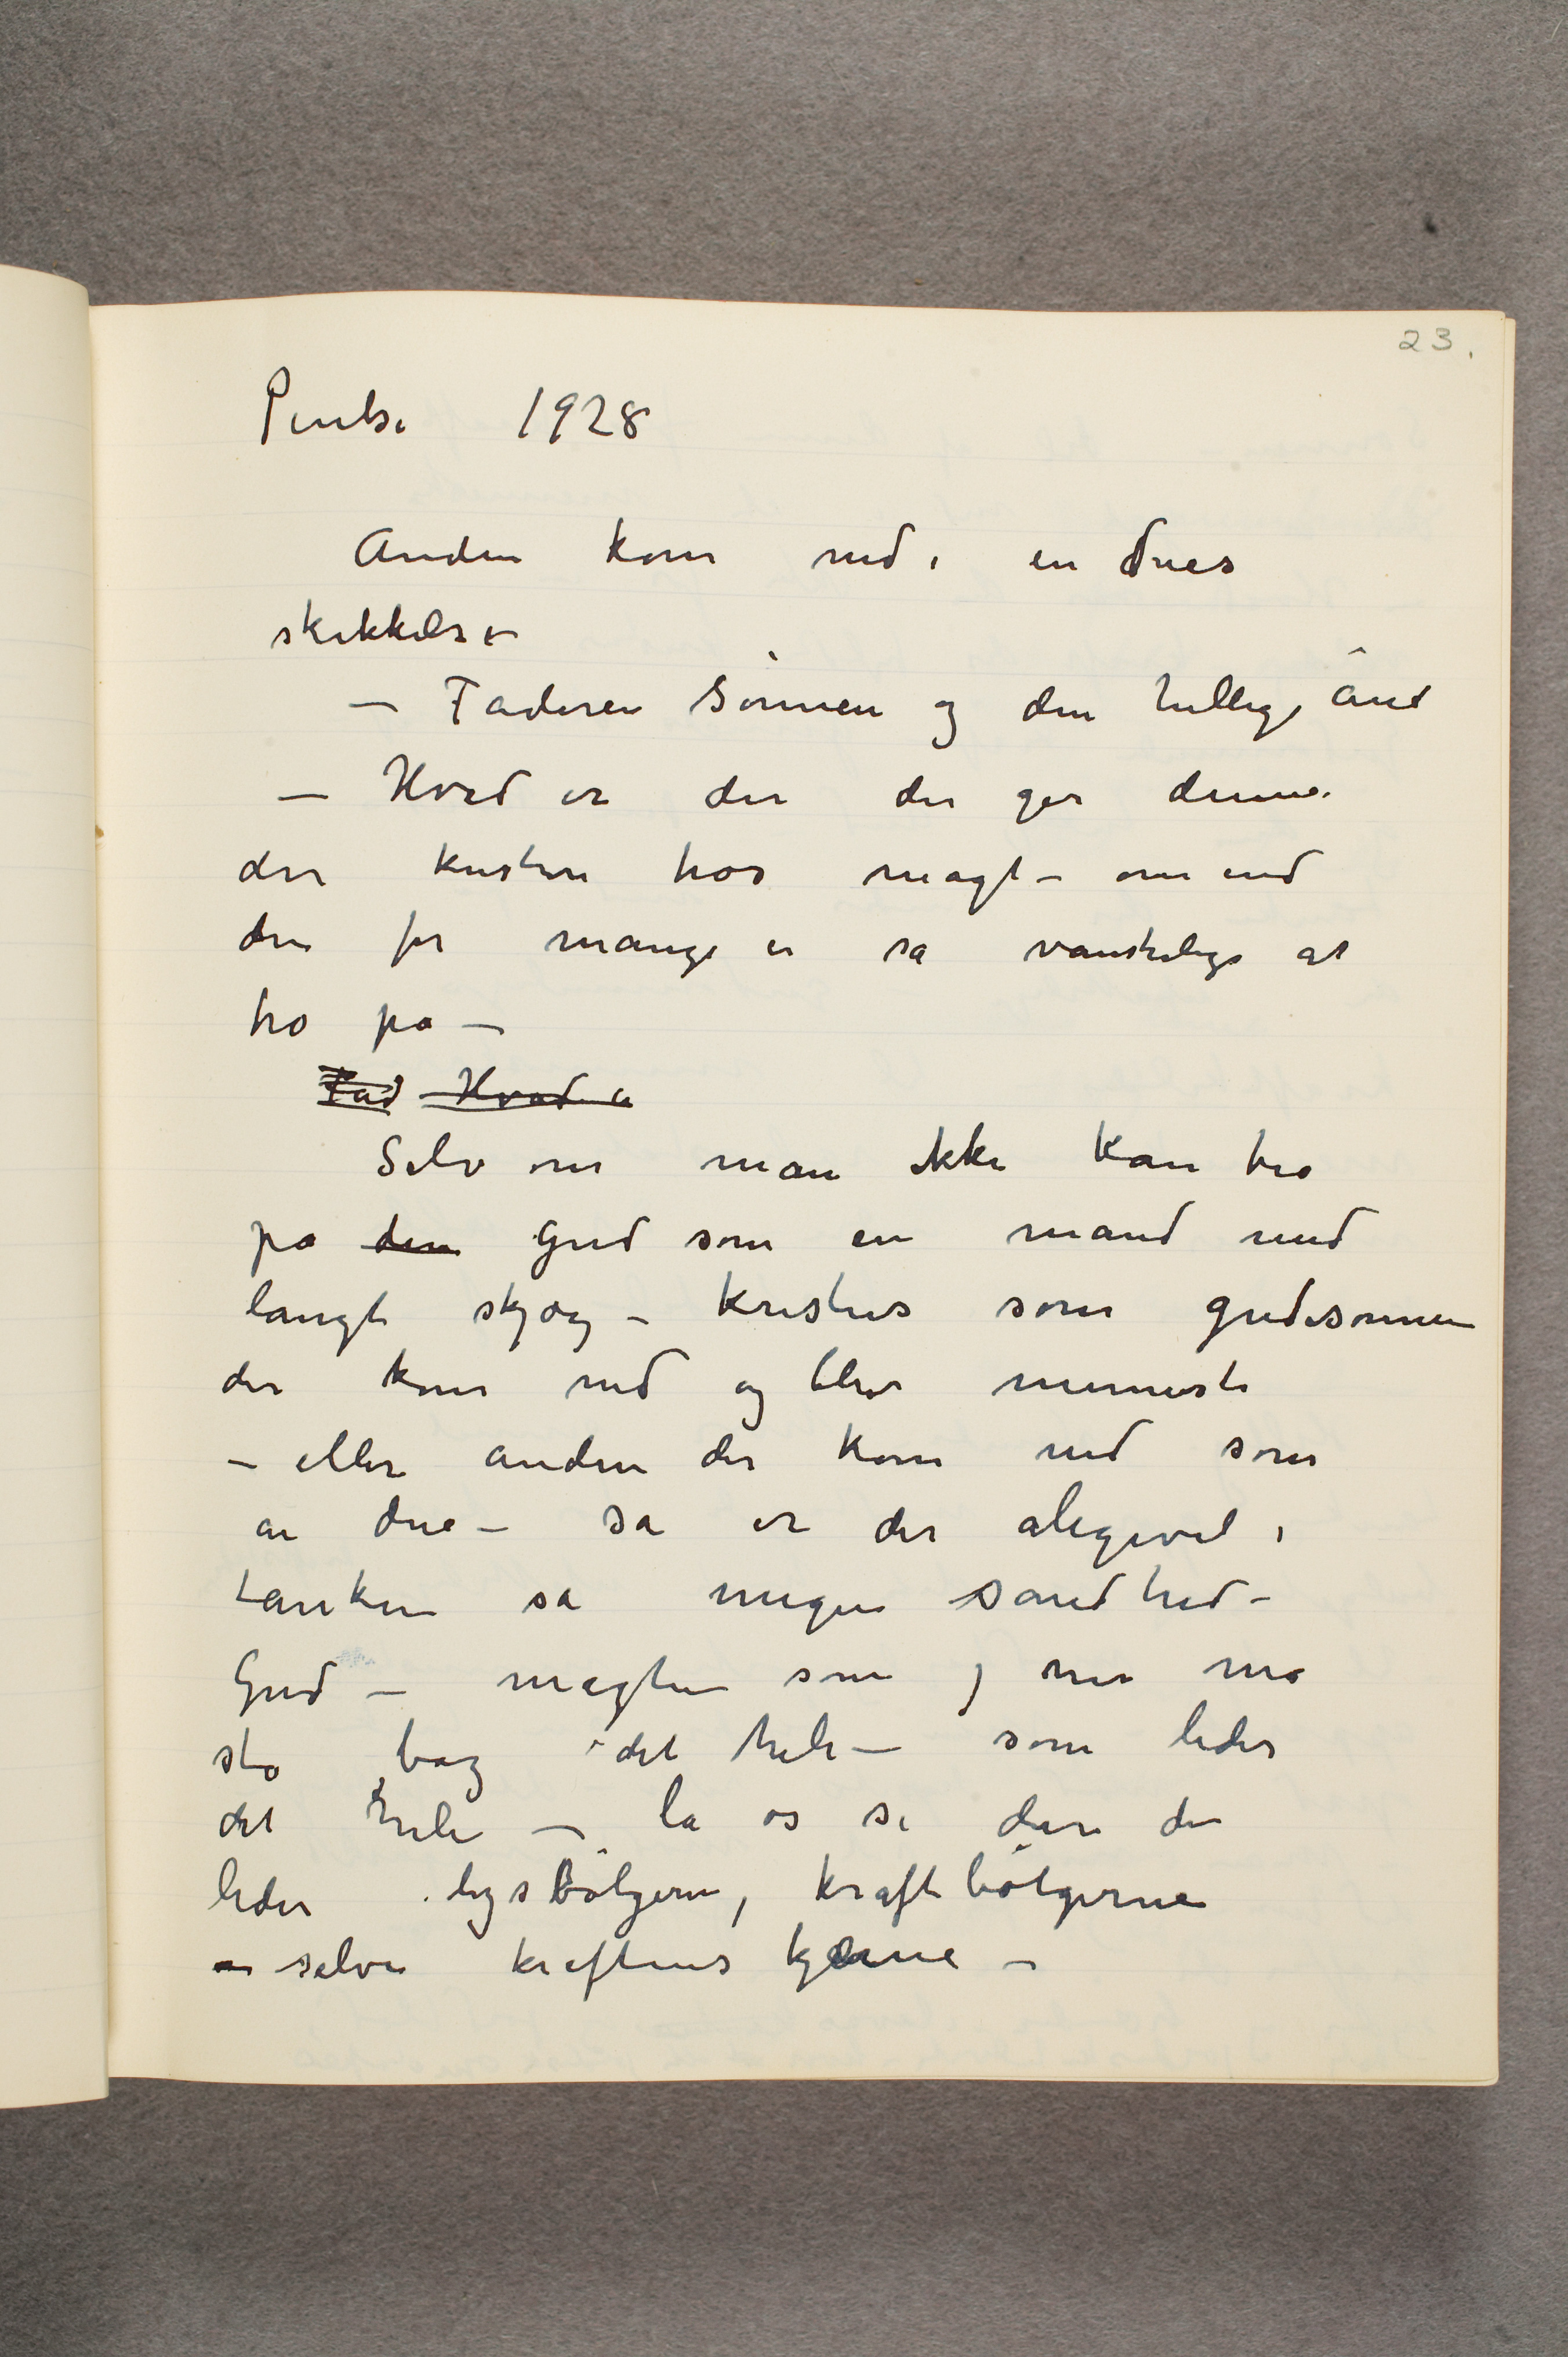 23.
Pintse 1928
Anden kom ned i en dues
skikkelse
– Faderen Sönnen og den hellige ånd
– Hvad er det der gir denne
den kristne tros magt – om end
den for mange er sa vanskelig at
tro pa –
Fad Hvad er
Selv om man ikke kan tro
pa den Gud som en mand med
langt skjæg – Kristus som gudesønnen
der kom ned og blev menneske
– eller anden der kom ned som
en due – sa er der aligevel i
tanken sa megen sandhed –
Gud – magten som jo nu må
sta bag det hele – som leder
det hele – la os si den der
leder lysbölgerne, kraftbölgerne
– selve kraftens kjerne –